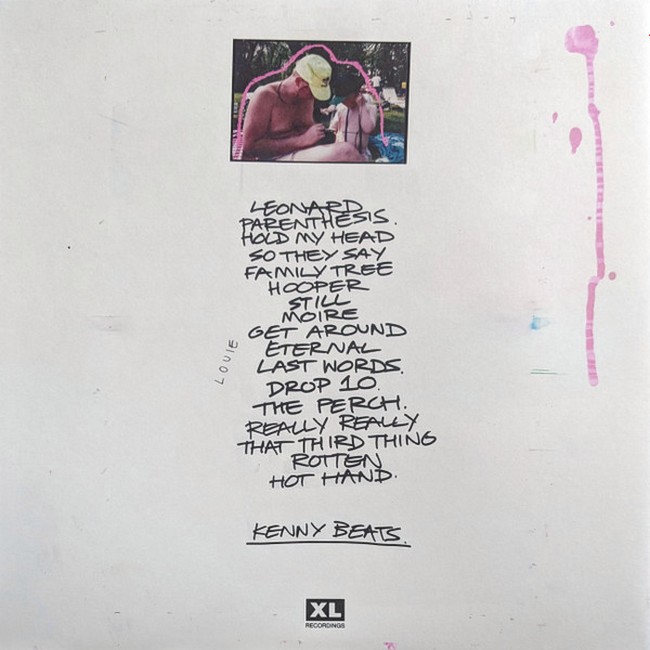 LEONARD
PARENTHESIS.
HOLD MY HEAD
SO THEY SAY
FAMILY TREE
HOOPER
STILL
MOIRE
GET AROUND
ETERNAL
LAST WORDS.
DROP 10.
THE PERCH.
REALLY REALLY
THAT THIRD THING
ROTTEN
HOT HAND.
LOUIE
KENNY BEATS.
XL
RECORDINGS